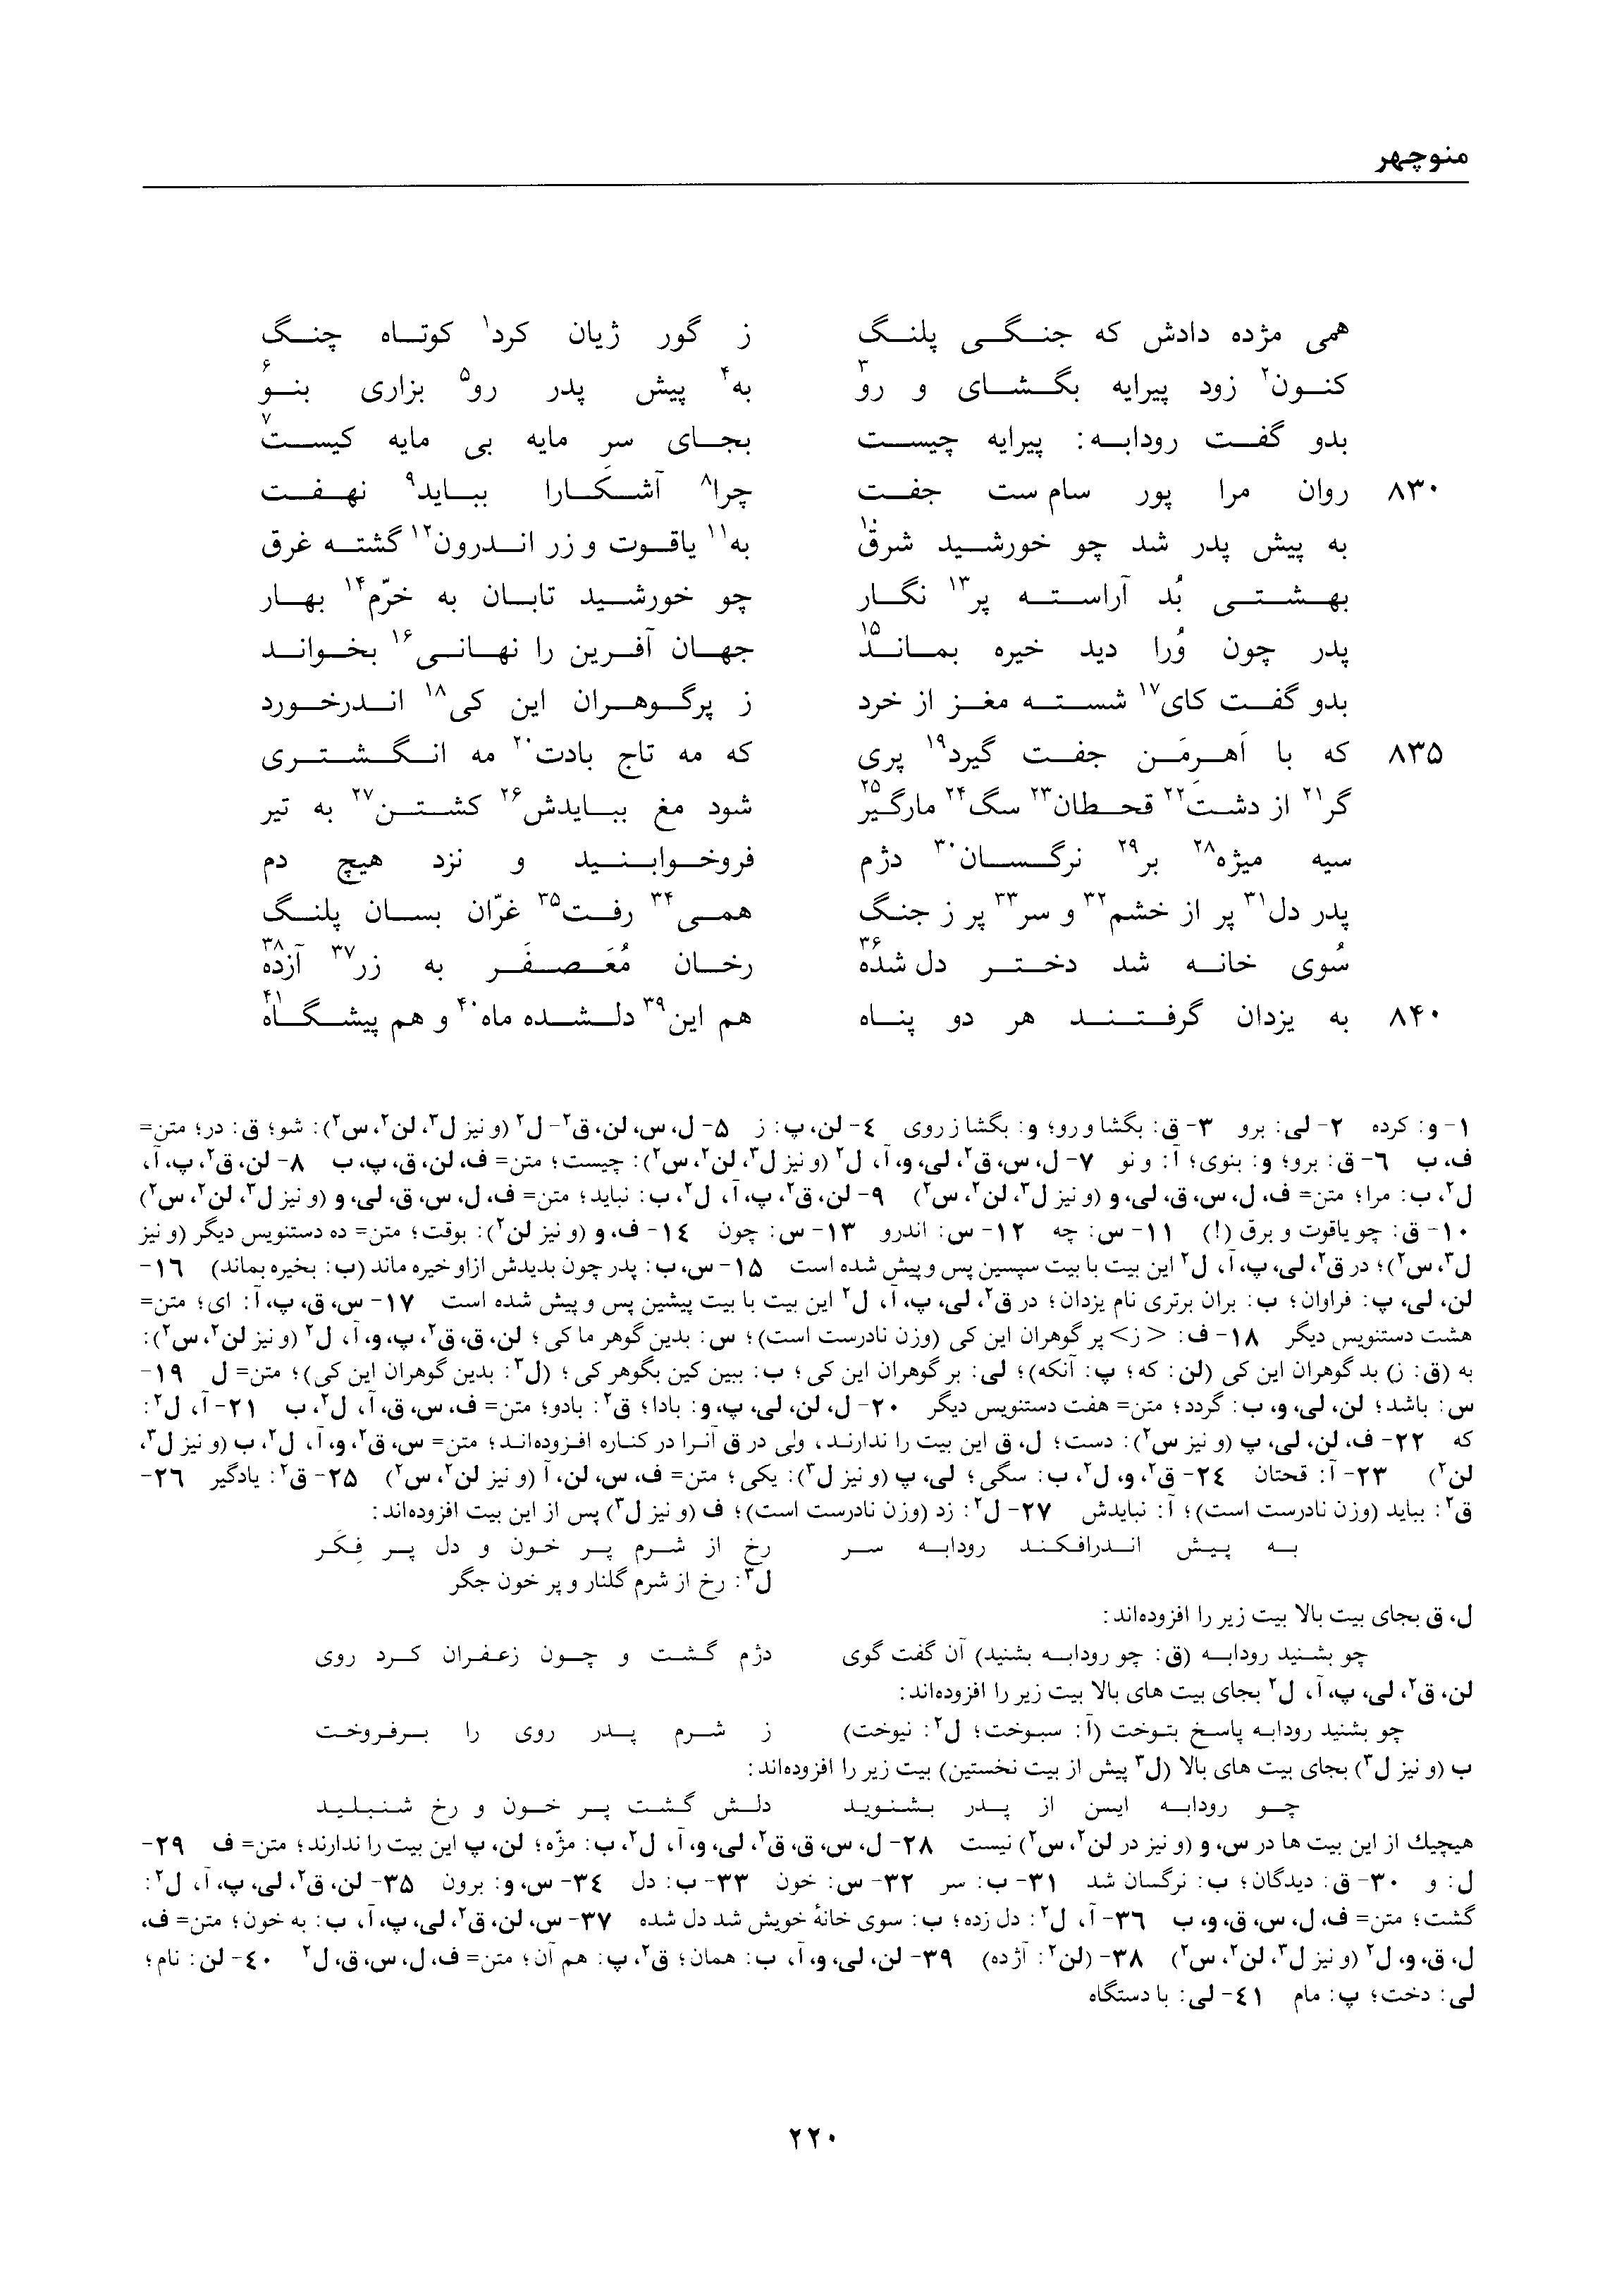 منوچهر
همی مژده دادش که جنگی پلنگ ز گور ژیان کرد۱ کوتاه چنگ
کنون۲ زود پیرایه بگشای و رو۳ به۴ پیش پدر رو۵ بزاری بنو۶
بدو گفت رودابه: پیرایه چیست بجای سر مایه بی مایه کیست۷
۸۳۰ روان مرا پور سام‌ست جفت چرا۸ آشکارا بباید۹ نهفت
به پیش پدر شد چو خورشید شرق۱۰ به۱۱ یاقوت و زر اندرون۱۲ گشته غرق
بهشتی بُد آراسته پر۱۳ نگار چو خورشید تابان به خرّم۱۴ بهار
پدر چون وُرا دید خیره بماند۱۵ جهان آفرین را نهانی۱۶ بخواند
بدو گفت کای۱۷ شسته مغز از خرد ز پرگوهران این کی۱۸ اندرخورد
۸۳۵ که با اَهرمَن جفت گیرد۱۹ پری که مه تاج بادت۲۰ مه انگشتری
گر۲۱ از دشت۲۲ قحطان۲۳ سگ۲۴ مارگیر۲۵ شود مغ ببایدش۲۶ کشتن۲۷ به تیر
سیه میژه۲۸ بر۲۹ نرگسان۳۰ دژم فروخوابنید و نزد هیچ دم
پدر دل۳۱ پر از خشم۳۲ و سر۳۳ پر ز جنگ همی۳۴ رفت۳۵ غرّان بسان پلنگ
سُوی خانه شد دختر دل شده۳۶ رخان مُعَصفَر به زر۳۷ آزده۳۸
۸۴۰ به یزدان گرفتند هر دو پناه هم این۳۹ دلشده ماه۴۰ و هم پیشگاه۴۱
۱- و: کرده ۲- لی: برو ۳- ق: بگشا و رو؛ و: بگشا ز روی ۴- لن، پ: ز ۵- ل، س، لن، ق۲- ل۲ (و نیز ل۳، لن۲، س۲): شو؛ ق: در؛ متن=
ف، ب ۶- ق: برو؛ و: بنوی؛ آ: و نو ۷- ل، س، ق۲، لی، و، آ، ل۲ (و نیز ل۳، لن۲، س۲): چیست؛ متن= ف، لن، ق، پ، ب ۸- لن، ق۲، پ، آ،
ل۲، ب: مرا؛ متن= ف، ل، س، ق، لی، و (و نیز ل۳، لن۲، س۲) ۹- لن، ق۲، پ، آ، ل۲، ب: نباید؛ متن= ف، ل، س، ق، لی، و (و نیز ل۳، لن۲، س۲)
۱۰- ق: چو یاقوت و برق (!) ۱۱- س: چه ۱۲- س: اندرو ۱۳- س: چون ۱۴- ف، و (و نیز لن۲): بوقت؛ متن= ده دستنویس دیگر (و نیز
ل۳، س۲)؛ در ق۲، لی، پ، آ، ل۲ این بیت با بیت سپسین پس و پیش شده است ۱۵- س، ب: پدر چون بدیدش ازاو خیره ماند (ب: بخیره بماند) ۱۶-
لن، لی، پ: فراوان؛ ب: بران برتری نام یزدان؛ در ق۲، لی، پ، آ، ل۲ این بیت با بیت پیشین پس و پیش شده است ۱۷- س، ق، پ، آ: ای؛ متن=
هشت دستنویس دیگر ۱۸- ف: <ز> پر گوهران این کی (وزن نادرست است)؛ س: بدین گوهر ما کی؛ لن، ق، ق۲، پ، و، آ، ل۲ (و نیز لن۲، س۲):
به (ق: ز) بد گوهران این کی (لن: که؛ پ: آنکه)؛ لی: بر گوهران این کی؛ ب: ببین کین بگوهر کی؛ (ل۳: بدین گوهران این کی)؛ متن= ل ۱۹-
س: باشد؛ لن، لی، و، ب: گردد؛ متن= هفت دستنویس دیگر ۲۰- ل، لن، لی، پ، و: بادا؛ ق۲: بادو؛ متن= ف، س، ق، آ، ل۲، ب ۲۱- آ، ل۲:
که ۲۲- ف، لن، لی، پ (و نیز س۲): دست؛ ل، ق این بیت را ندارند، ولی در ق آنرا در کناره افزوده‌اند؛ متن= س، ق۲، و، آ، ل۲، ب (و نیز ل۳،
لن۲) ۲۳- آ: قحتان ۲۴- ق۲، و، ل۲، ب: سگی؛ لی، پ (و نیز ل۳): یکی؛ متن= ف، س، لن، آ (و نیز لن۲، س۲) ۲۵- ق۲: یادگیر ۲۶-
ق۲: بباید (وزن نادرست است)؛ آ: نبایدش ۲۷- ل۲: زد (وزن نادرست است)؛ ف (و نیز ل۳) پس از این بیت افزوده‌اند:
به پیش اندرافکند رودابه سر رخ از شرم پر خون و دل پر فِکَر
ل۳: رخ از شرم گلنار و پر خون جگر
ل، ق بجای بیت بالا بیت زیر را افزوده‌اند:
چو بشنید رودابه (ق: چو رودابه بشنید) آن گفت گوی دژم گشت و چون زعفران کرد روی
لن، ق۲، لی، پ، آ، ل۲ بجای بیت های بالا بیت زیر را افزوده‌اند:
چو بشنید رودابه پاسخ بتوخت (آ: سبوخت؛ ل۲: نیوخت) ز شرم پدر روی را برفروخت
ب (و نیز ل۳) بجای بیت های بالا (ل۳ پیش از بیت نخستین) بیت زیر را افزوده‌اند:
چو رودابه ایسن از پدر بشنوید دلش گشت پر خون و رخ شنبلید
هیچیك از این بیت ها در س، و (و نیز در لن۲، س۲) نیست ۲۸- ل، س، ق، ق۲، لی، و، آ، ل۲، ب: مژه؛ لن، پ این بیت را ندارند؛ متن= ف ۲۹-
ل: و ۳۰- ق: دیدگان؛ ب: نرگسان شد ۳۱- ب: سر ۳۲- س: خون ۳۳- ب: دل ۳۴- س، و: برون ۳۵- لن، ق۲، لی، پ، آ، ل۲:
گشت؛ متن= ف، ل، س، ق، و، ب ۳۶- آ، ل۲: دل زده؛ ب: سوی خانهٔ خویش شد دل شده ۳۷- س، لن، ق۲، لی، پ، آ، ب: به خون؛ متن= ف،
ل، ق، و، ل۲ (و نیز ل۳، لن۲، س۲) ۳۸- (لن۲: آژده) ۳۹- لن، لی، و، آ، ب: همان؛ ق۲، پ: هم آن؛ متن= ف، ل، س، ق، ل۲ ۴۰- لن: نام؛
لی: دخت؛ پ: مام ۴۱- لی: با دستگاه
۲۲۰